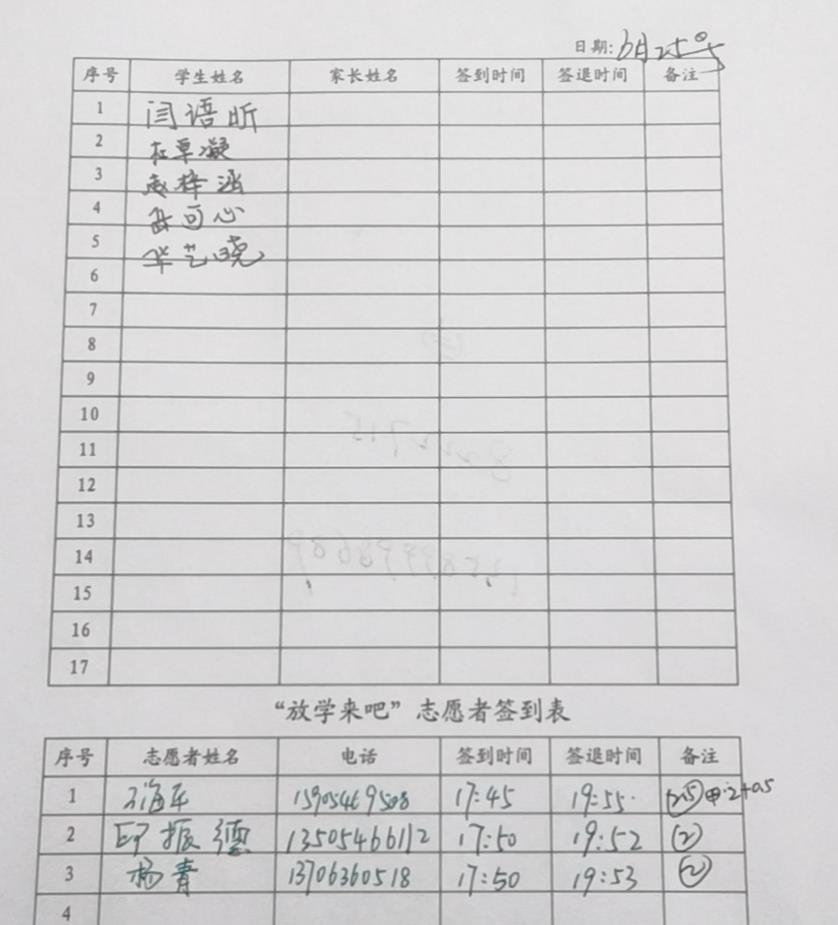 日期: 6月25号
序号 学生姓名 家长姓名 签到时间 签退时间 备注
1 闫语昕
2 杜草凝
3 赵梓涵
4 可心
5 毕艺晓
6
7
8
9
10
11
12
13
14
15
16
17
“放学来吧”志愿者签到表
序号 志愿者姓名 电话 签到时间 签退时间 备注
1 海平 15905469508 17:45 19:55
2 印振德 13505466112 17:50 19:52 ②
3 杨青 13706360518 17:50 19:53 ②
4